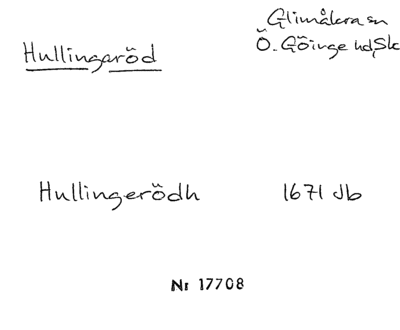 Hullingaröd
Glimåkra sn
Ö. Göinge hd, Sk
Hullingerödh 1671 Jb
Nr 17708